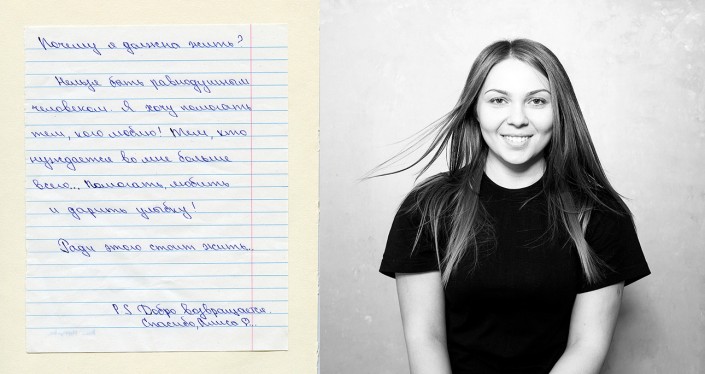 Почему я должна жить?
Нельзя быть равнодушным
человеком. Я хочу помогать
тем, кого люблю! Тем, кто
нуждается во мне больше
всего... Помогать, любить
и дарить улыбку!
Ради этого стоит жить...
P.S. Добро возвращается.
Спасибо,